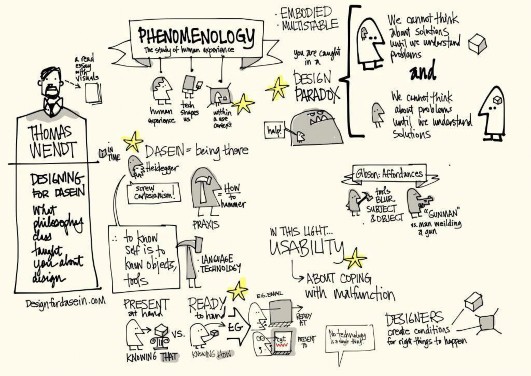 PHENOMENOLOGY
The study of human experience
a read
essay
with
visuals
human
experience
tech
shapes
us
within
a use context
- EMBODIED
- MULTISTABLE
you are caught
in a
DESIGN
PARADOX
help!
We cannot think
about solutions
until we understand
problems
and
We cannot think
about problems
until we understand
solutions
THOMAS
WENDT
DESIGNING
FOR DASEIN
What
philosophy
class
taught
you about
design
Designfordasein.com
IN TIME
DASEIN = being there
Heidegger
screw
cartesianism!
HOW
to
hammer
PRAXIS
∴ to know
self is to
know objects,
tools
- LANGUAGE
- TECHNOLOGY
Gibson: Affordances
tools
BLUR
SUBJECT
& OBJECT
"GUNMAN"
vs. man weilding
a gun
IN THIS LIGHT...
USABILITY
ABOUT COPING
with malfunction
PRESENT
at hand
KNOWING THAT
VS.
READY
to hand
KNOWING HOW
EG
EG. EMAIL
READY
AT
PRESENT
TO
"No technology
is a single thing"
DESIGNERS
create conditions
for right things to happen